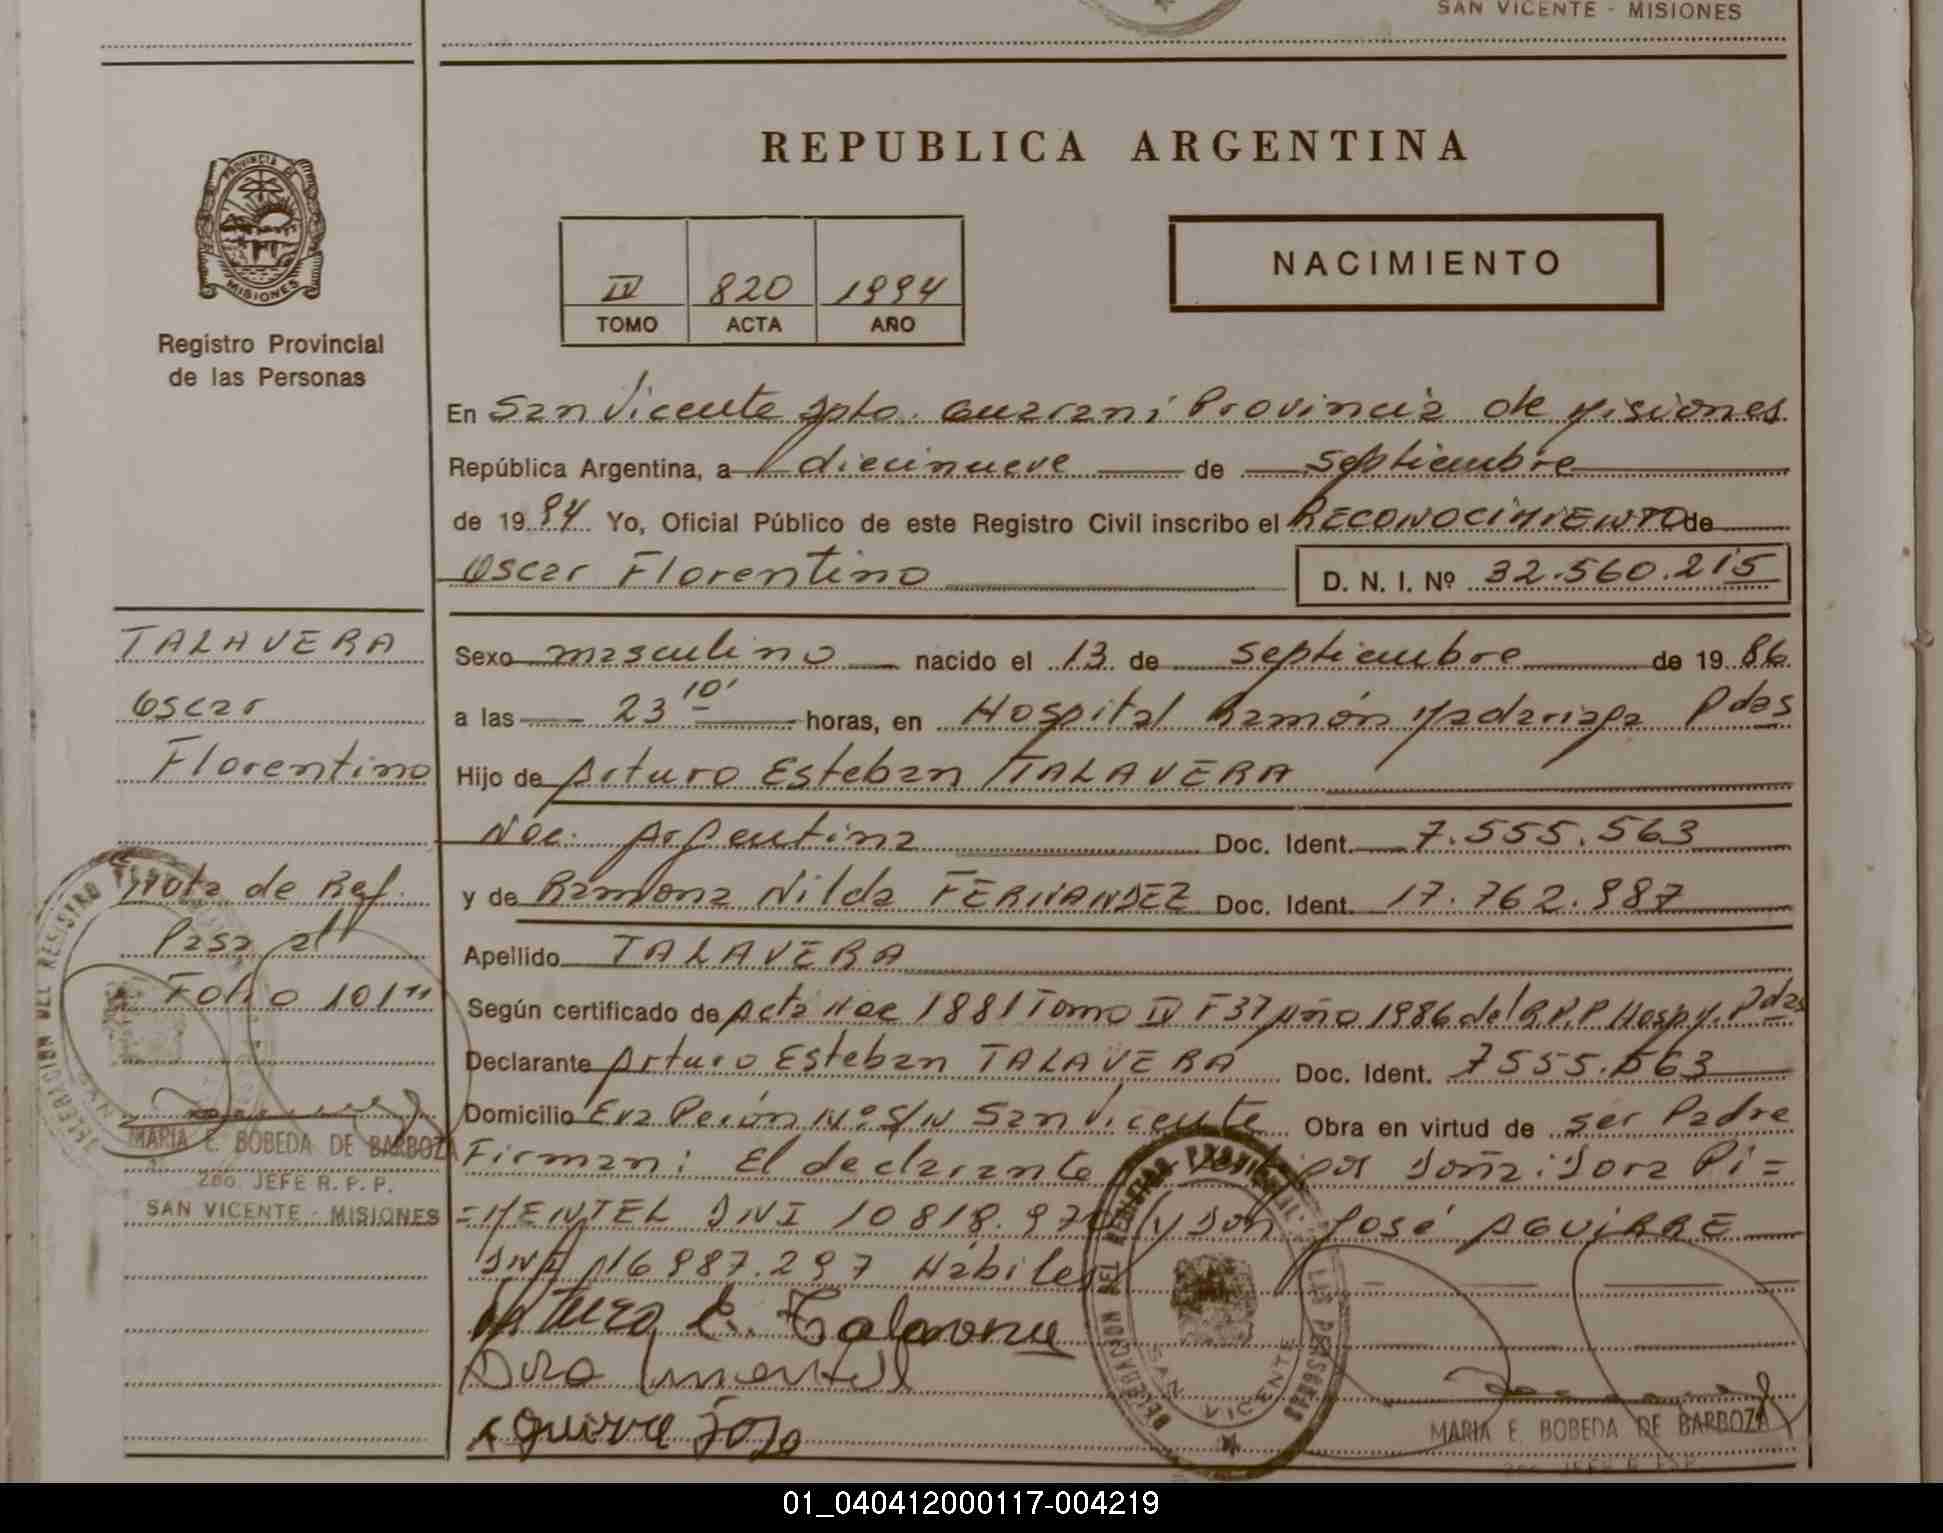 SAN VICENTE - MISIONES
REPUBLICA ARGENTINA
PROVINCIA DE
MISIONES
Registro Provincial
de las Personas
IV 820 1994
TOMO ACTA AÑO
NACIMIENTO
En San Vicente Dpto. Guaraní Provincia de Misiones
República Argentina, a diecinueve de septiembre
de 1994 Yo, Oficial Público de este Registro Civil inscribo el RECONOCIMIENTO de
Oscar Florentino D. N. I. Nº 32.560.215
TALAVERA
Oscar
Florentino
Sexo masculino nacido el 13 de septiembre de 1986
a las 23 10' horas, en Hospital Ramón Madariaga Pdas
Hijo de Arturo Esteban TALAVERA
Nac. Argentina Doc. Ident. 7.555.563
y de Ramona Nilda FERNANDEZ Doc. Ident. 17.762.987
Apellido TALAVERA
Según certificado de Acta Nac 1881 Tomo IV F37 Año 1986 del R.P.P Hosp M. Pdas
Declarante Arturo Esteban TALAVERA Doc. Ident. 7555.563
Domicilio Eva Perón Nº S/N San Vicente Obra en virtud de ser Padre
Firman: El declarante por Doña: Dora Pi=
=MENTEL DNI 10818.970 y Don José AGUIRRE
DNI 16987.297 Hábiles
Nota de Ref.
Pasa al
Folio 101"
MARIA E. BOBEDA DE BARBOZA
2do. JEFE R. P. P.
SAN VICENTE - MISIONES
Arturo E. Talavera
Dora Pimentel
Aguirre José
DELEGACION DEL REGISTRO PROVINCIAL DE LAS PERSONAS
SAN VICENTE
MARIA E. BOBEDA DE BARBOZA
01_040412000117-004219